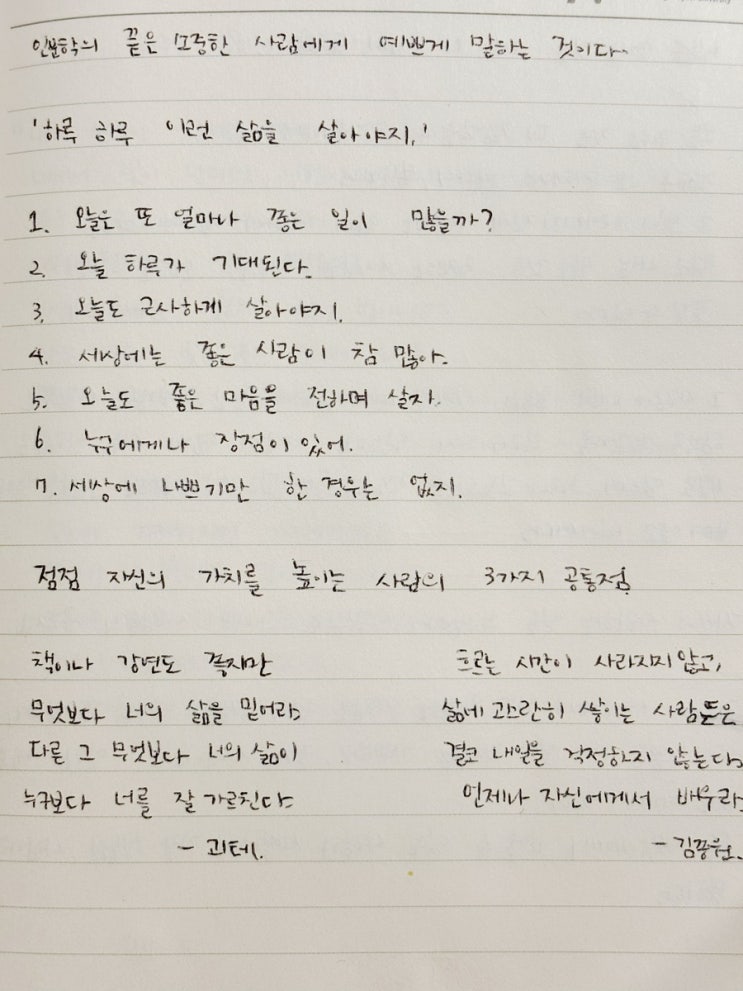 인문학의 끝은 소중한 사람에게 예쁘게 말하는 것이다.
'하루 하루 이런 삶을 살아야지.'
1. 오늘은 또 얼마나 좋은 일이 많을까?
2. 오늘 하루가 기대된다.
3. 오늘도 근사하게 살아야지.
4. 세상에는 좋은 사람이 참 많아.
5. 오늘도 좋은 마음을 전하며 살자.
6. 누구에게나 장점이 있어.
7. 세상에 나쁘기만 한 경우는 없지.
점점 자신의 가치를 높이는 사람의 3가지 공통점
책이나 강연도 좋지만
무엇보다 너의 삶을 믿어라.
다른 그 무엇보다 너의 삶이
누구보다 너를 잘 가르친다.
- 괴테.
흐르는 시간이 사라지지 않고,
삶에 고스란히 쌓이는 사람들은
결코 내일을 걱정하지 않는다.
언제나 자신에게서 배우라.
- 김종원.